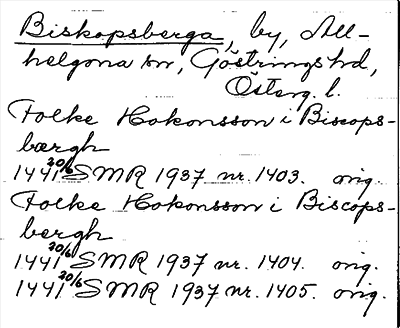 Biskopsberga, by, All-
helgona sn, Göstrings hd,
Österg. l.
Folke Hokonsson i Biscops-
bærgh
1441 20/6 SMR 1937 nr. 1403. orig.
Folke Hokonsson i Biscops-
bergh
1441 20/6 SMR 1937 nr. 1404. orig.
1441 20/6 SMR 1937 nr. 1405. orig.